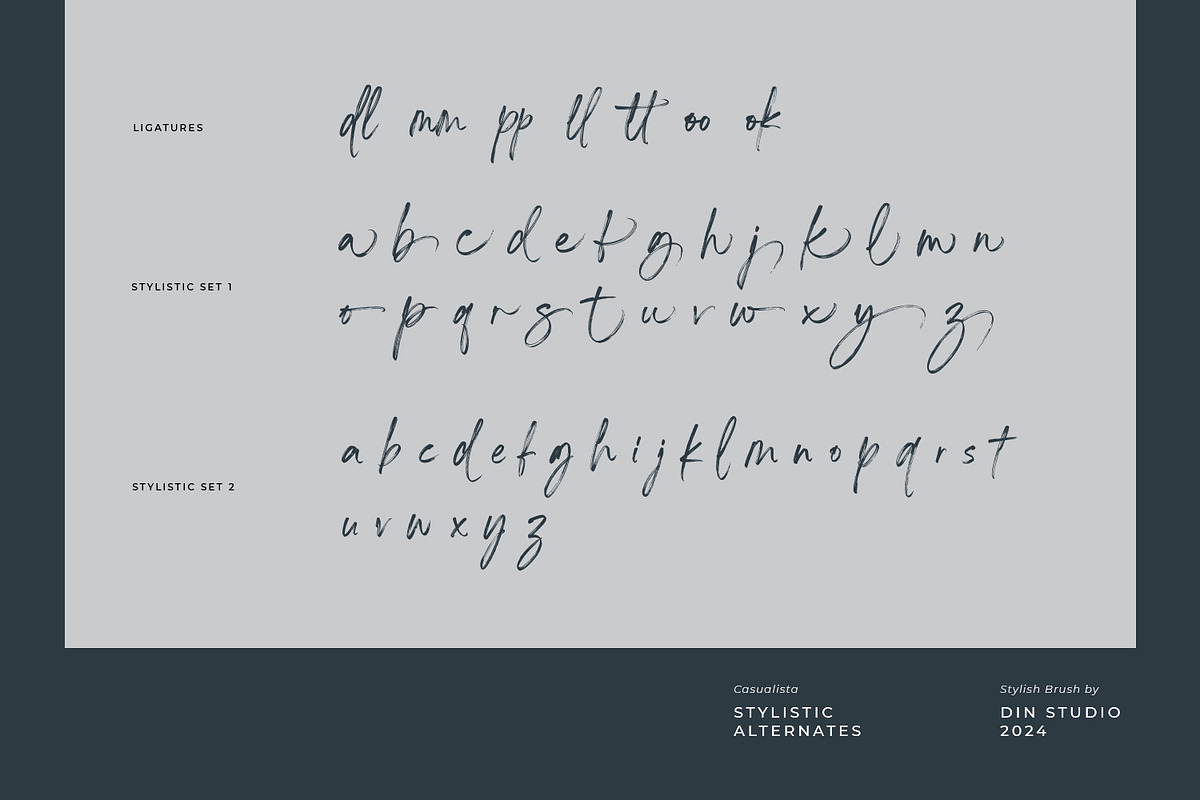 LIGATURES
dl mm pp ll tt oo ok
STYLISTIC SET 1
a b c d e f g h j k l m n
o p q r s t u v w x y z
STYLISTIC SET 2
a b c d e f g h i j k l m n o p q r s t
u v w x y z
Casualista
STYLISTIC
ALTERNATES
Stylish Brush by
DIN STUDIO
2024